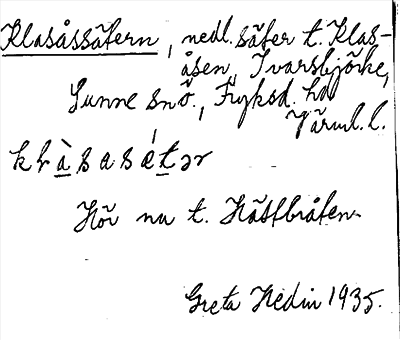 Klasåssätern, nedl. säter t. Klas-
åsen, Ivarsbjörke,
Sunne snö., Fryksd. hd
Värml. l.
klàsasǽtər
Hör nu t. Hästbråten.
Greta Hedin 1935.